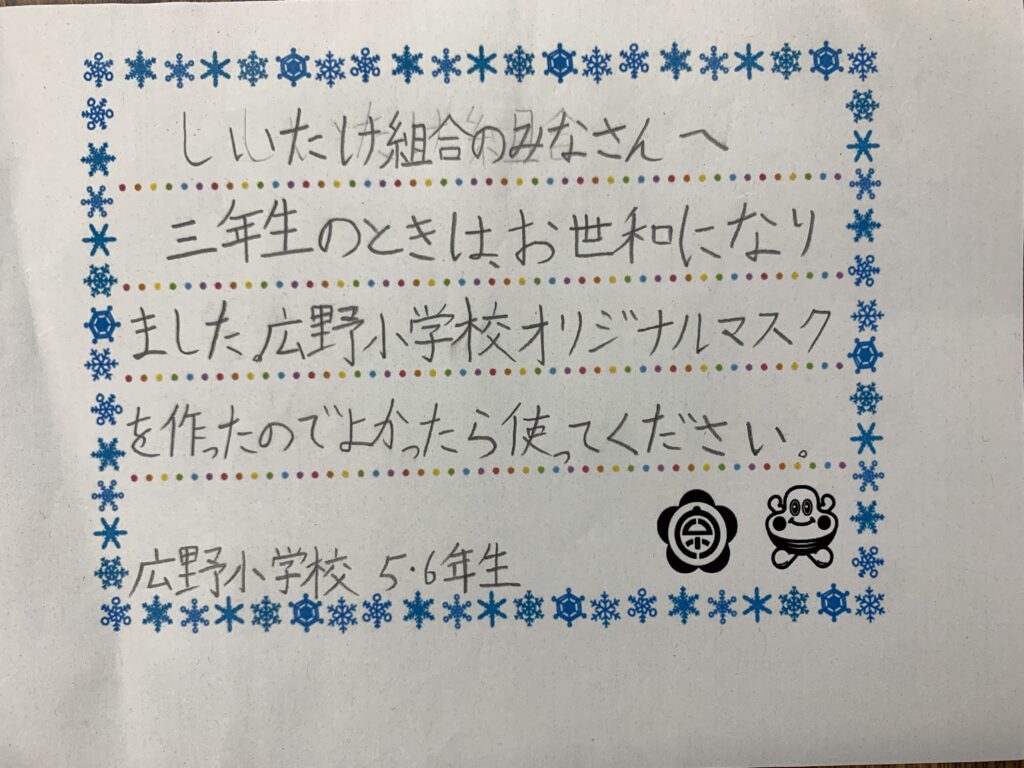 しいたけ組合のみなさんへ
三年生のときは、お世和になり
ました。広野小学校オリジナルマスク
を作ったのでよかったら使ってください。
広野小学校 5・6年生